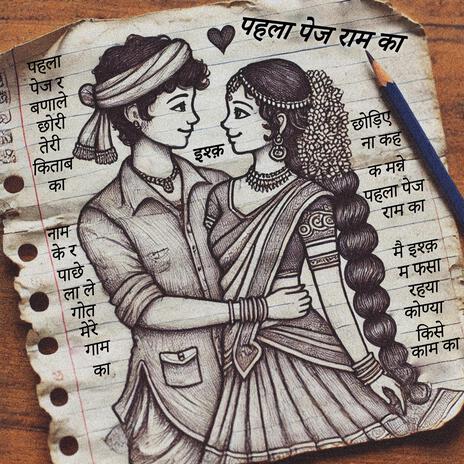 पहला पेज राम का
पहला
पेज र
बणाले
छोरी
तेरी
किताब
का
इश्क़
छोड़िए
ना कह
क मन्ने
पहला पेज
राम का
नाम
के र
पाछै
ला ले
गोत
मेरे
गाम
का
मै इश्क़
म फसा
रहया
कोण्या
किसे
काम का